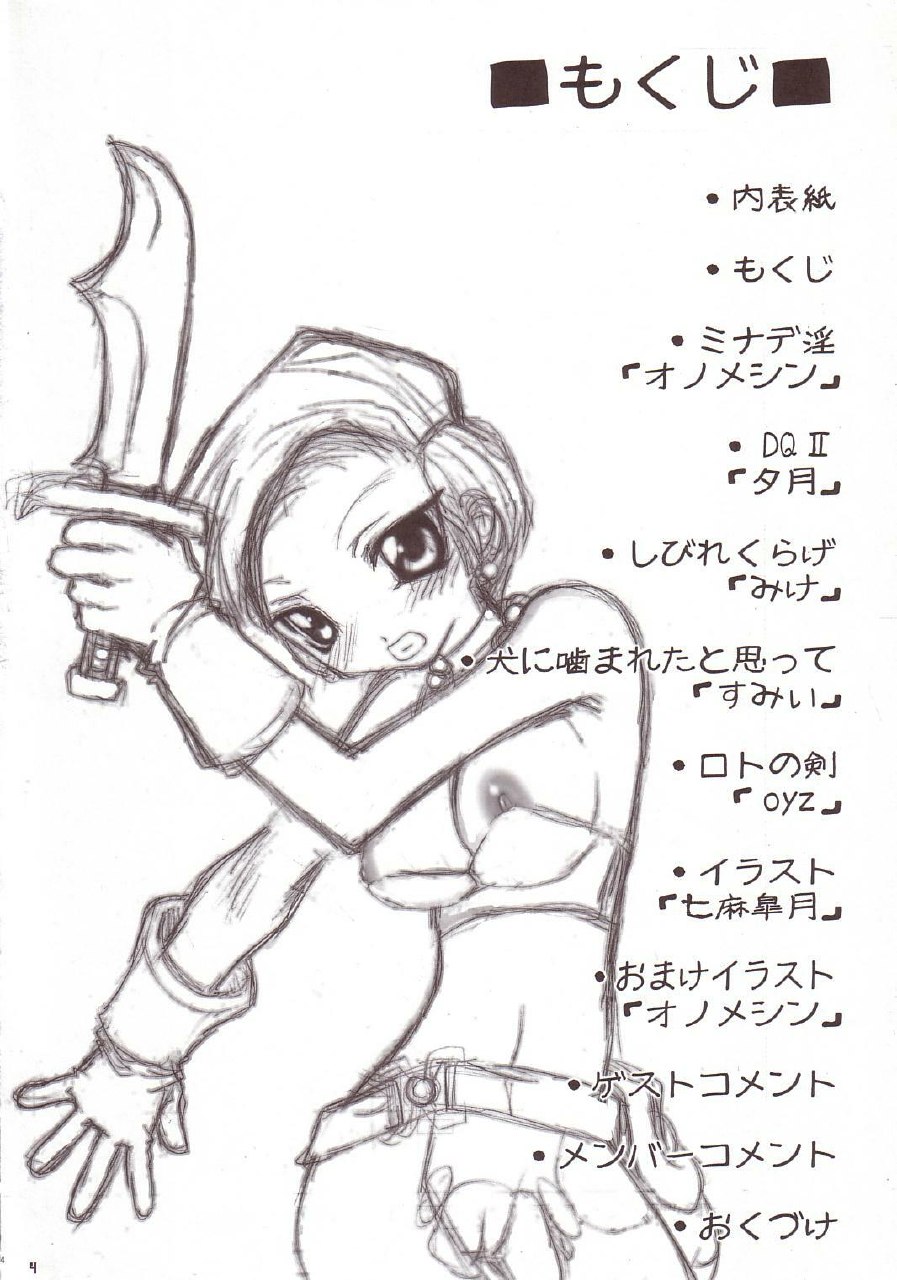 ■もくじ■
・内表紙
・もくじ
・ミナデ淫
『オノメシン』
・DQⅡ
『夕月』
・しびれくらげ
『みけ』
・犬に噛まれたと思って
『すみぃ』
・ロトの剣
『oyz』
・イラスト
『七麻皐月』
・おまけイラスト
『オノメシン』
・ゲストコメント
・メンバーコメント
・おくづけ
4